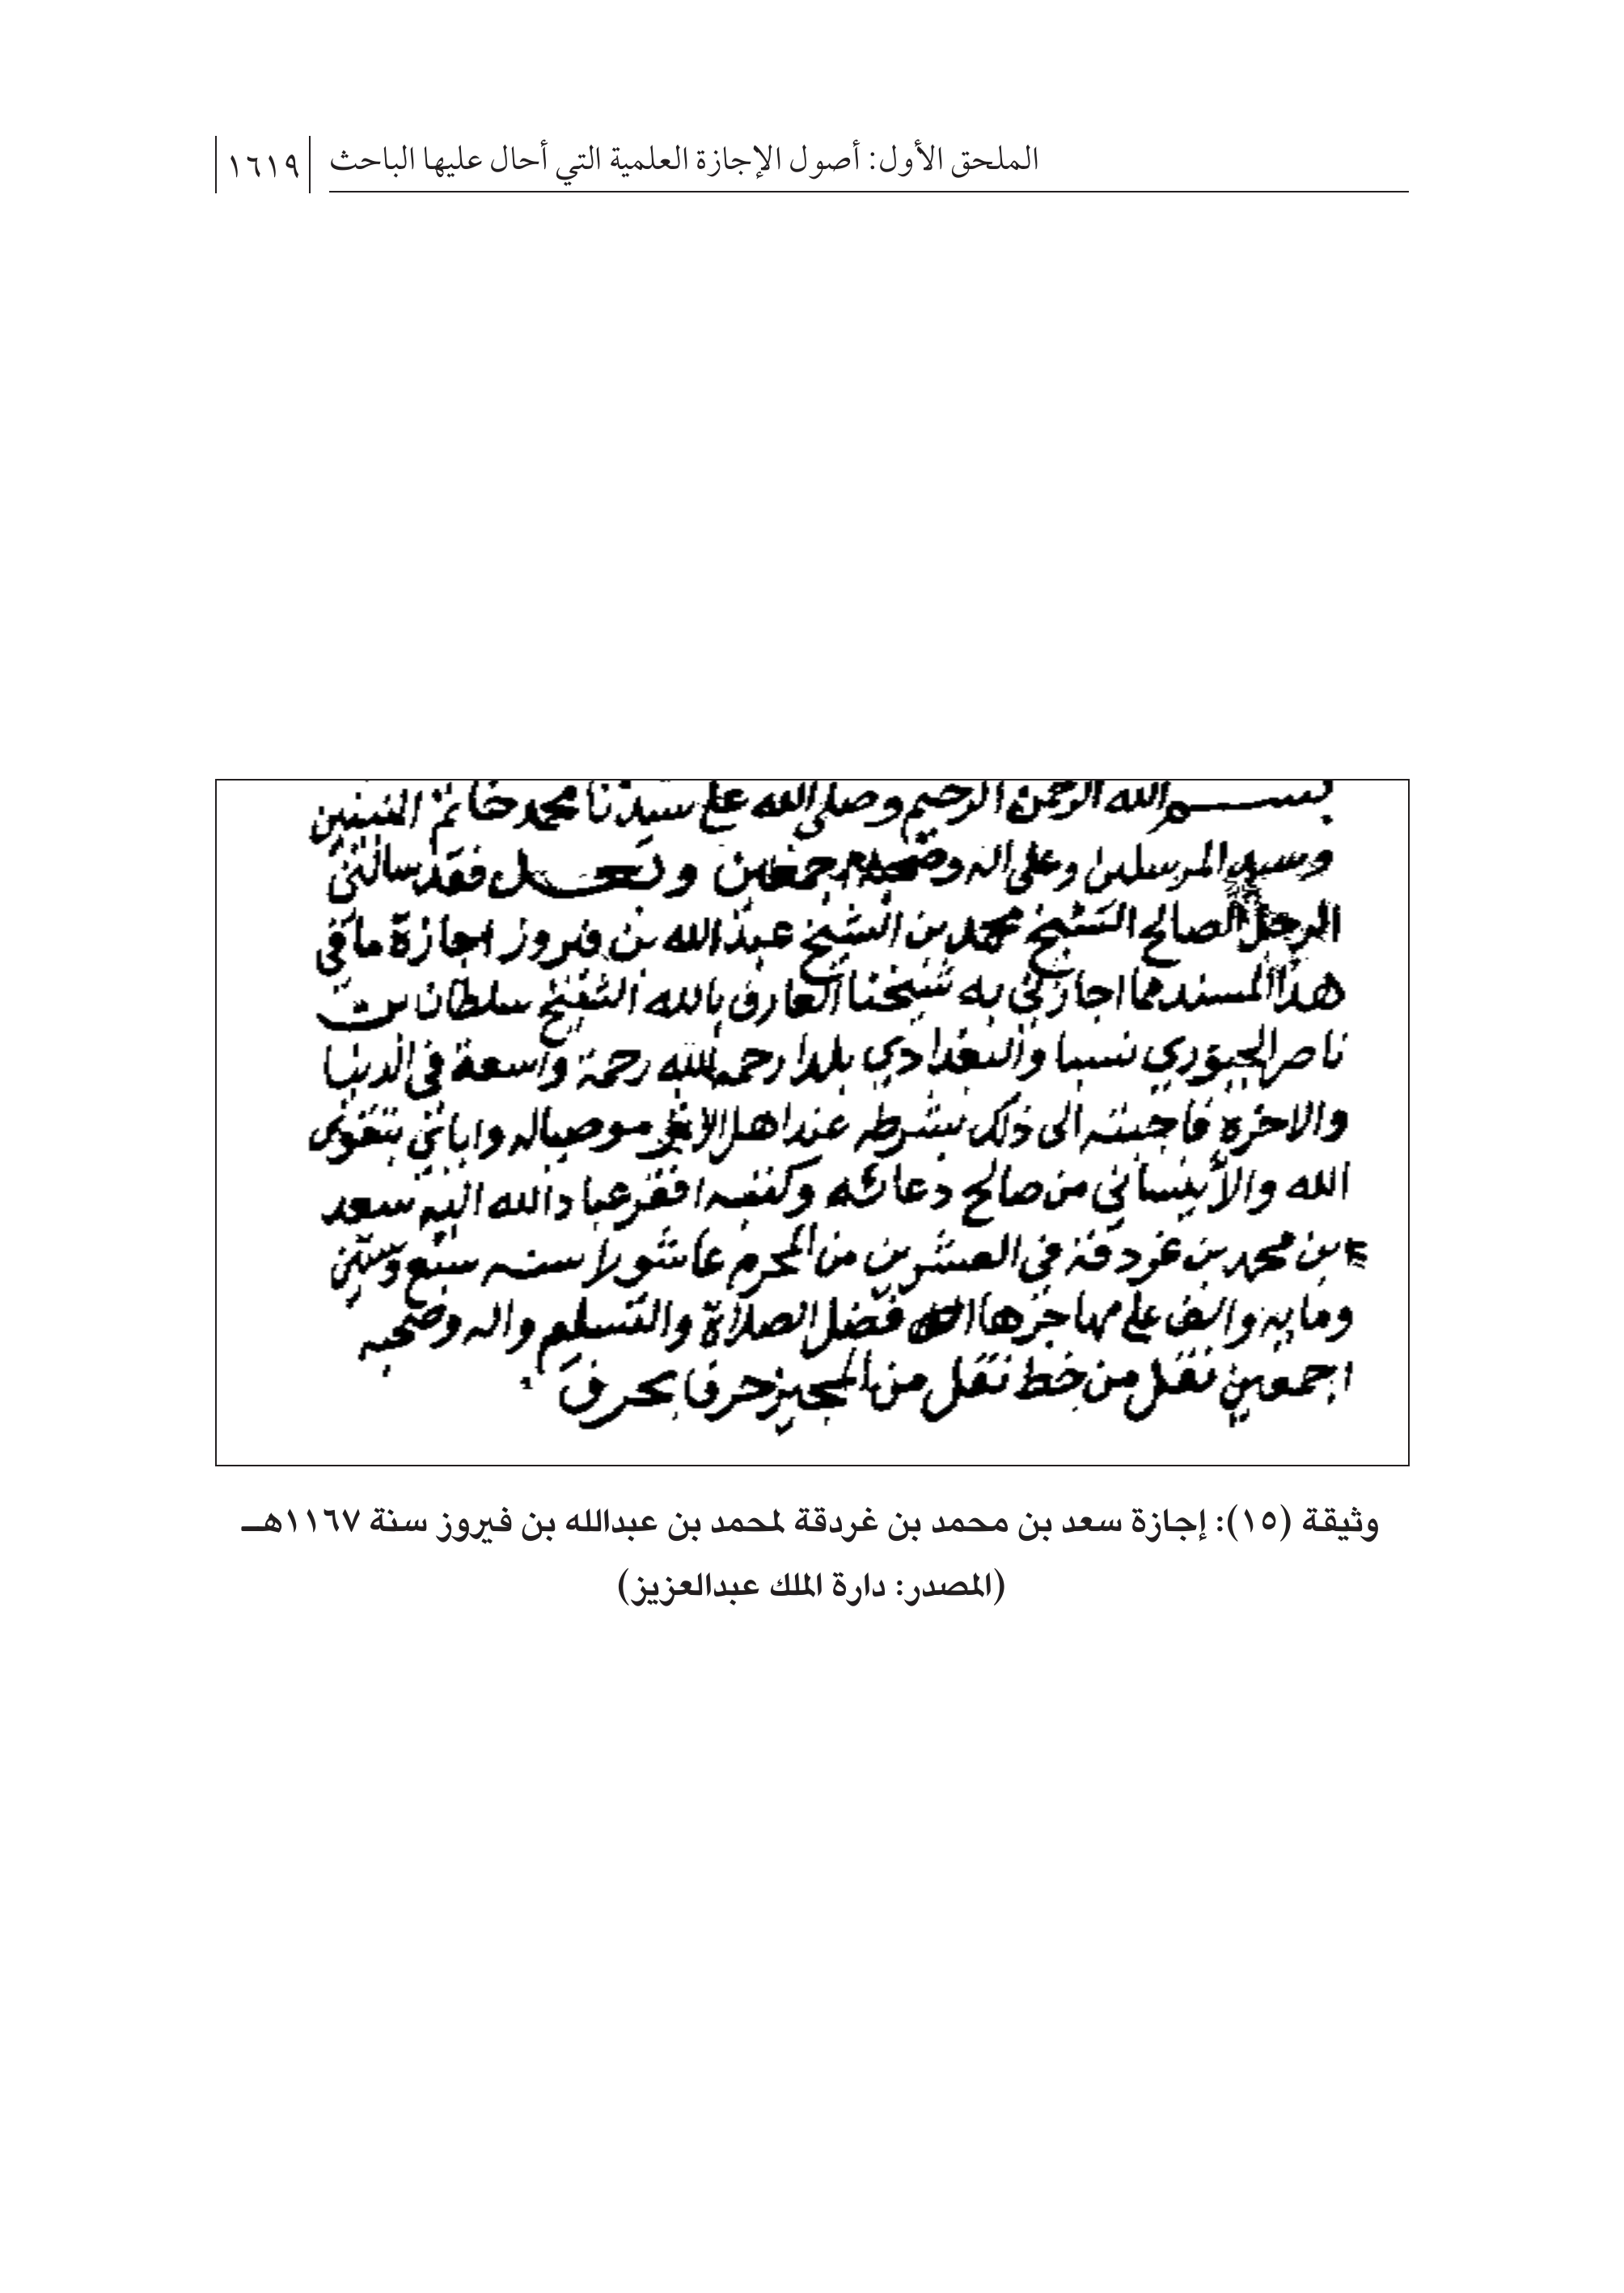 الملحق الأول: أصول الإجازة العلمية التي أحال عليها الباحث
١٦١٩
بسم الله الرحمن الرحيم وصلى الله على سيدنا محمد خاتم النبيين
وسيد المرسلين وعلى اله وصحبه اجمعين وبعد فقد سالني
الرجل الصالح الشيخ محمد بن الشيخ عبد الله بن فيروز اجازة ما في
هذا المسند مما اجازني به شيخنا العارف بالله الشيخ سلطان بن
ناصر الجبوري نسبا والبغدادي بلدا رحمه الله رحمة واسعة في الدنيا
والاخرة فاجبته الى ذلك بشرطه عند اهل موصيا له واياي بتقوى
الله والا ينساني من صالح دعائه وكتبه افقر عباد الله اليه سعد
بن محمد بن غردقة في العشرين من المحرم عاشور سنه سبع وستين
ومايه والف على مهاجرها افضل الصلاة والتسليم واله وصحبه
اجمعين نقل من خط نقل من المجيز حرفا بحرف
وثيقة (١٥): إجازة سعد بن محمد بن غردقة لمحمد بن عبدالله بن فيروز سنة ١١٦٧هـ
(المصدر: دارة الملك عبدالعزيز)